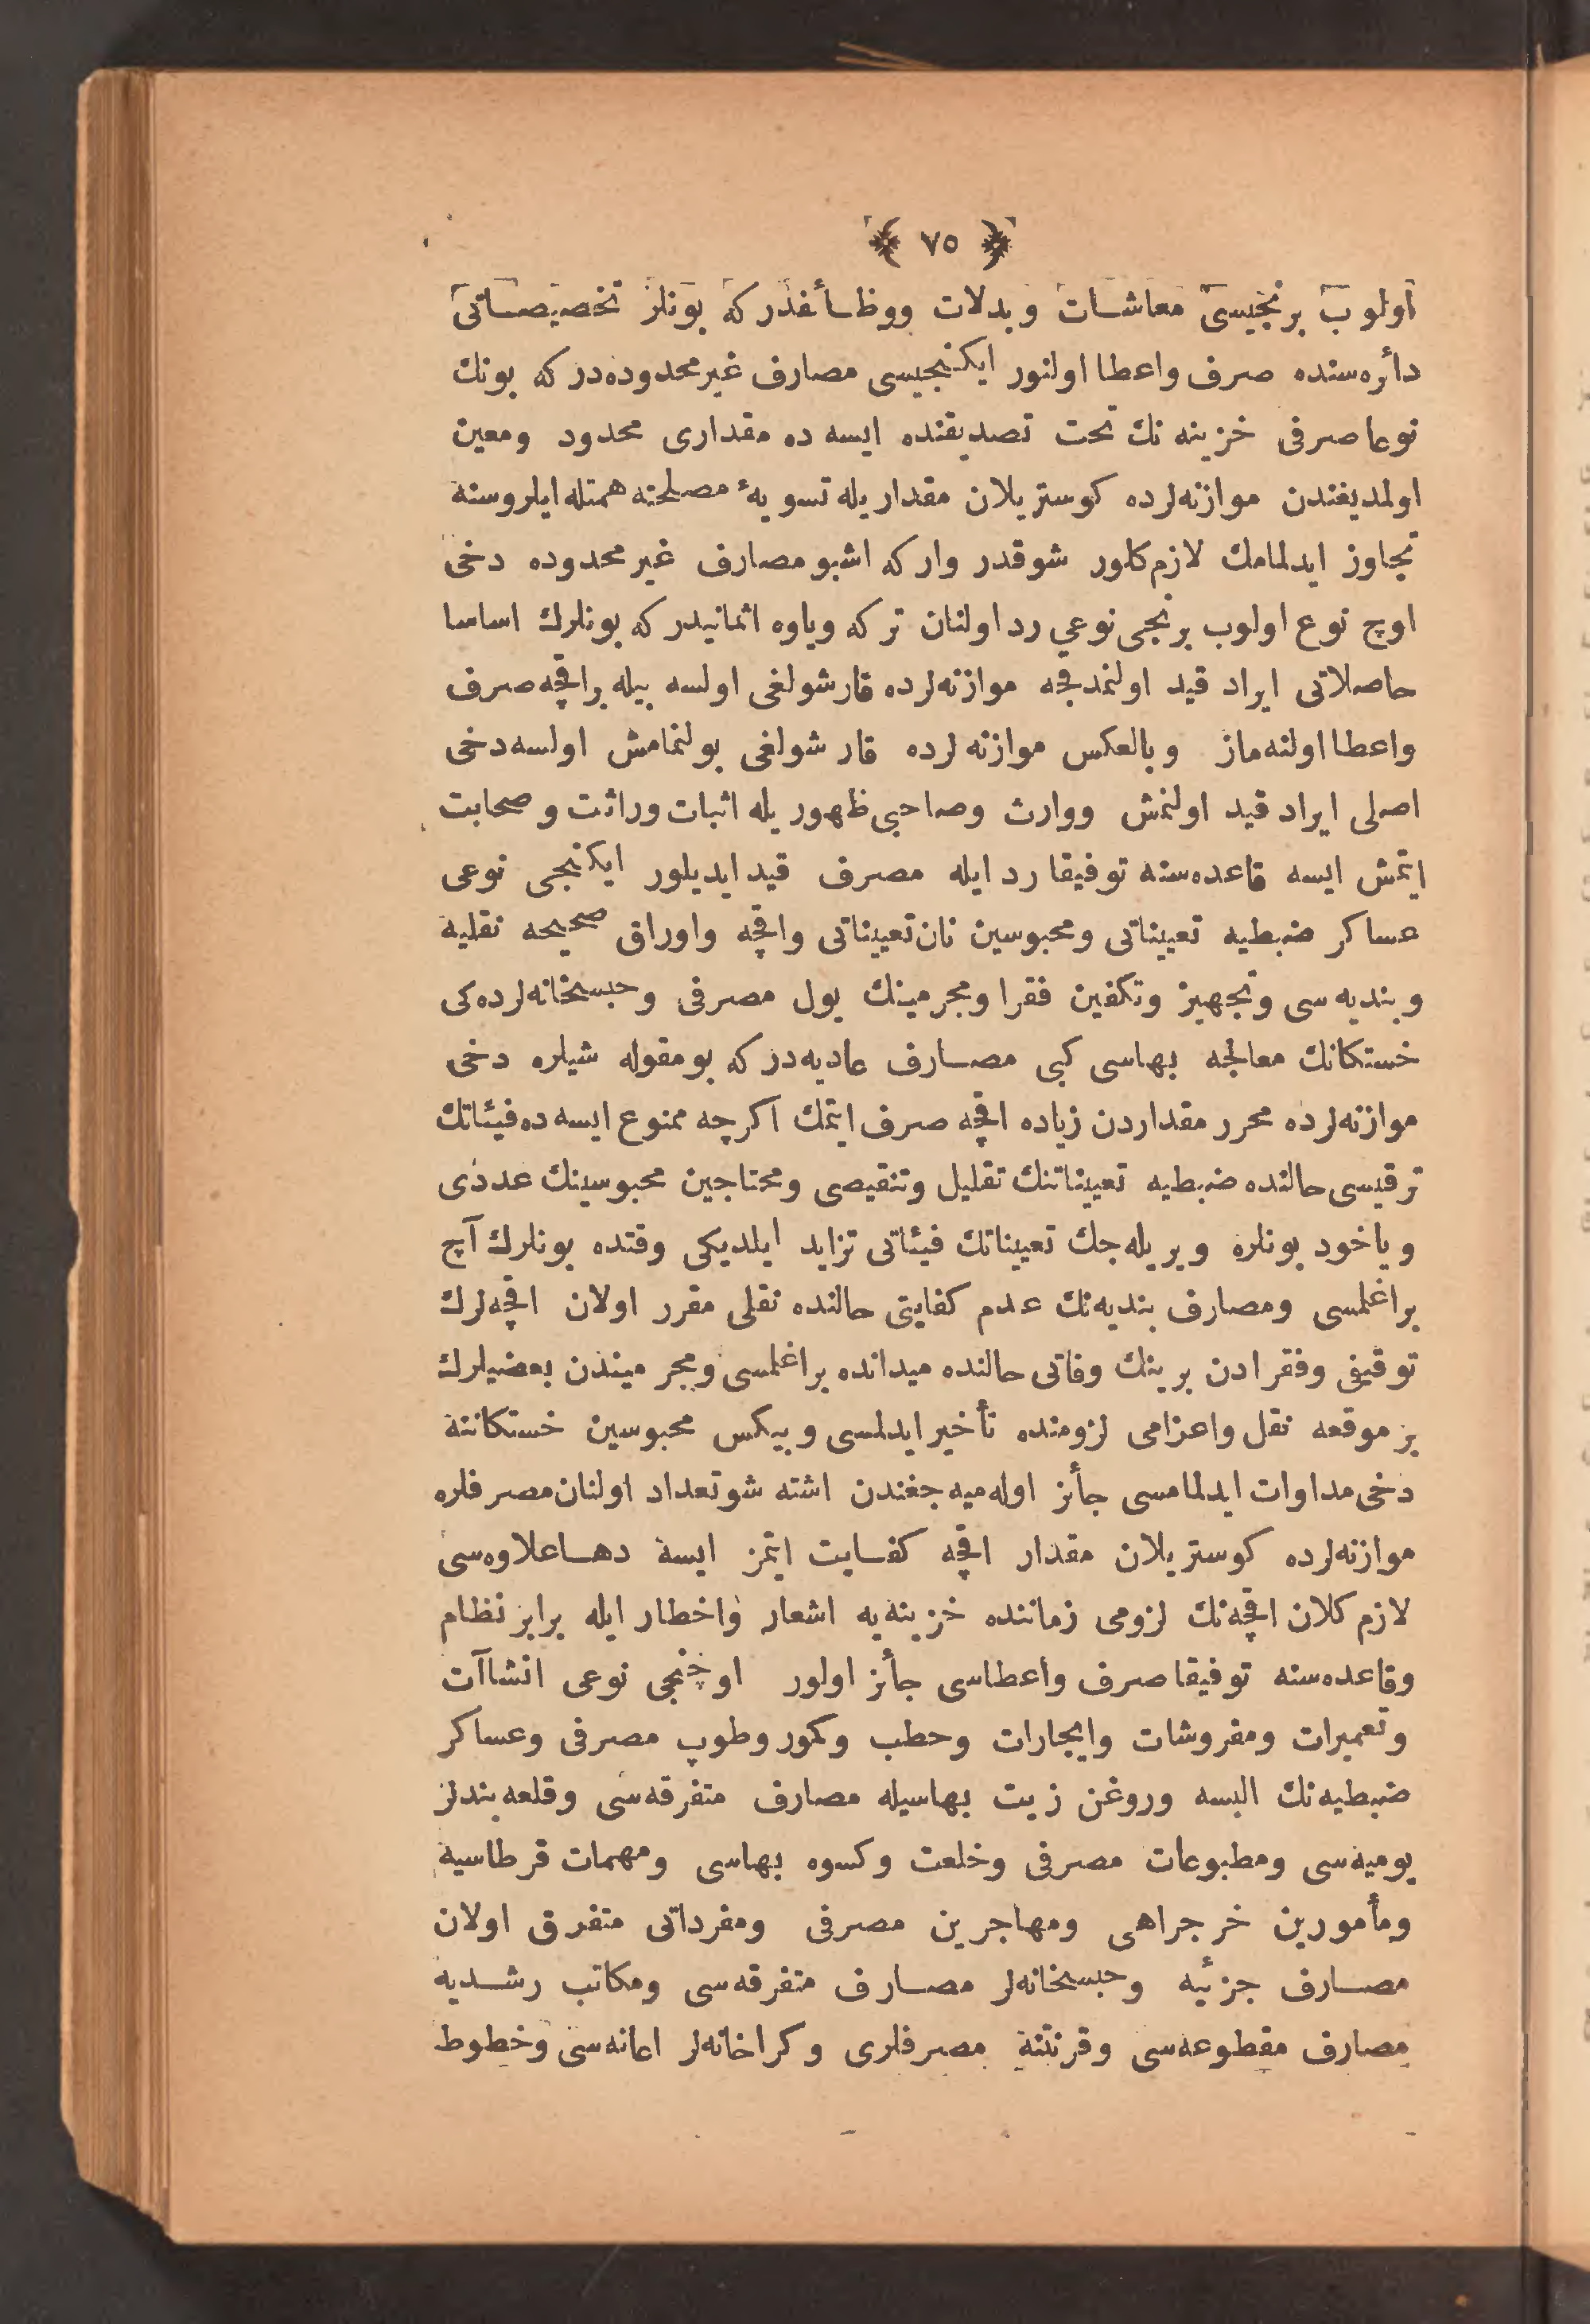 ﴿ ٧٥ ﴾
اولوب برنجیسی معاشات وبدلات ووظائفدر که بونلر تخصیصاتی
دائره‌سنده صرف واعطا اولنور ایکنجیسی مصارف غیر محدوده‌در که بونك
نوعا صرفی خزینه نك تحت تصدیقنده ایسه ده مقداری محدود ومعین
اولمدیغندن موازنه‌لرده کوستریلان مقداریله تسویهٔ مصلحته همتله ایلروسنه
تجاوز ایدلمامك لازم کلور شو قدر وار که اشبو مصارف غیر محدوده دخی
اوچ نوع اولوب برنجی نوعی رد اولنان ترکه ویاوه اثمانیدر که بونلرك اساسا
حاصلاتی ایراد قید اولنمدقجه موازنه‌لرده قارشولغی اولسه بیله بر اقچه صرف
واعطا اولنه‌ماز وبالعکس موازنه لرده قارشولغی بولنمامش اولسه دخی
اصلی ایراد قید اولنمش ووارث وصاحبی ظهوریله اثبات وراثت وصحابت
ایتمش ایسه قاعده‌سنه توفیقا رد ایله مصرف قید ایدیلور ایکنجی نوعی
عساکر ضبطیه تعییناتی ومحبوسین نان تعییناتی واقچه واوراق صحیحه نقلیه
وبندیه سی وتجهیز وتکفین فقرا ومجرمینك یول مصرفی وحبسخانه‌لرده‌کی
خستکانك معالجه بهاسی کبی مصارف عادیه‌در که بو مقوله شیلره دخی
موازنه‌لرده محرر مقداردن زیاده اقچه صرف ایتمك اکرچه ممنوع ایسه ده فیئاتك
ترقیسی حالنده ضبطیه تعییناتنك تقلیل وتنقیصی ومحتاجین محبوسینك عددی
ویاخود بونلره ویریله جك تعییناتك فیئاتی تزاید ایلدیکی وقتده بونلرك آچ
براغلمسی ومصارف بندیه‌نك عدم کفایتی حالنده نقلی مقرر اولان اقچه‌لرك
توقیفی وفقرادن برینك وفاتی حالنده میدانده براغلمسی ومجرمیندن بعضیلرك
بر موقعه نقل واعزامی لزومنده تأخیر ایدلمسی وبیکس محبوسین خستکاننه
دخی مداوات ایدلمامسی جائز اوله میه جغندن اشته شو تعداد اولنان مصرفلره
موازنه‌لرده کوستریلان مقدار اقچه کفایت ایتمز ایسه دها علاوه‌سی
لازم کلان اقچه‌نك لزومی زماننده خزینه‌یه اشعار واخطار ایله برابر نظام
وقاعده‌سنه توفیقا صرف واعطاسی جائز اولور اوچنجی نوعی انشاآت
وتعمیرات ومفروشات وایجارات وحطب وکمور وطوپ مصرفی وعساکر
ضبطیه‌نك البسه وروغن زیت بهاسیله مصارف متفرقه‌سی وقلعه بندلر
یومیه‌سی ومطبوعات مصرفی وخلعت وکسوه بهاسی ومهمات قرطاسیه
ومأمورین خرجراهی ومهاجرین مصرفی ومفرداتی متفرق اولان
مصارف جزئیه وحبسخانه‌لر مصارف متفرقه‌سی ومکاتب رشدیه
مصارف مقطوعه‌سی وقرنتنه مصرفلری وکراخانه‌لر اعانه‌سی وخطوط